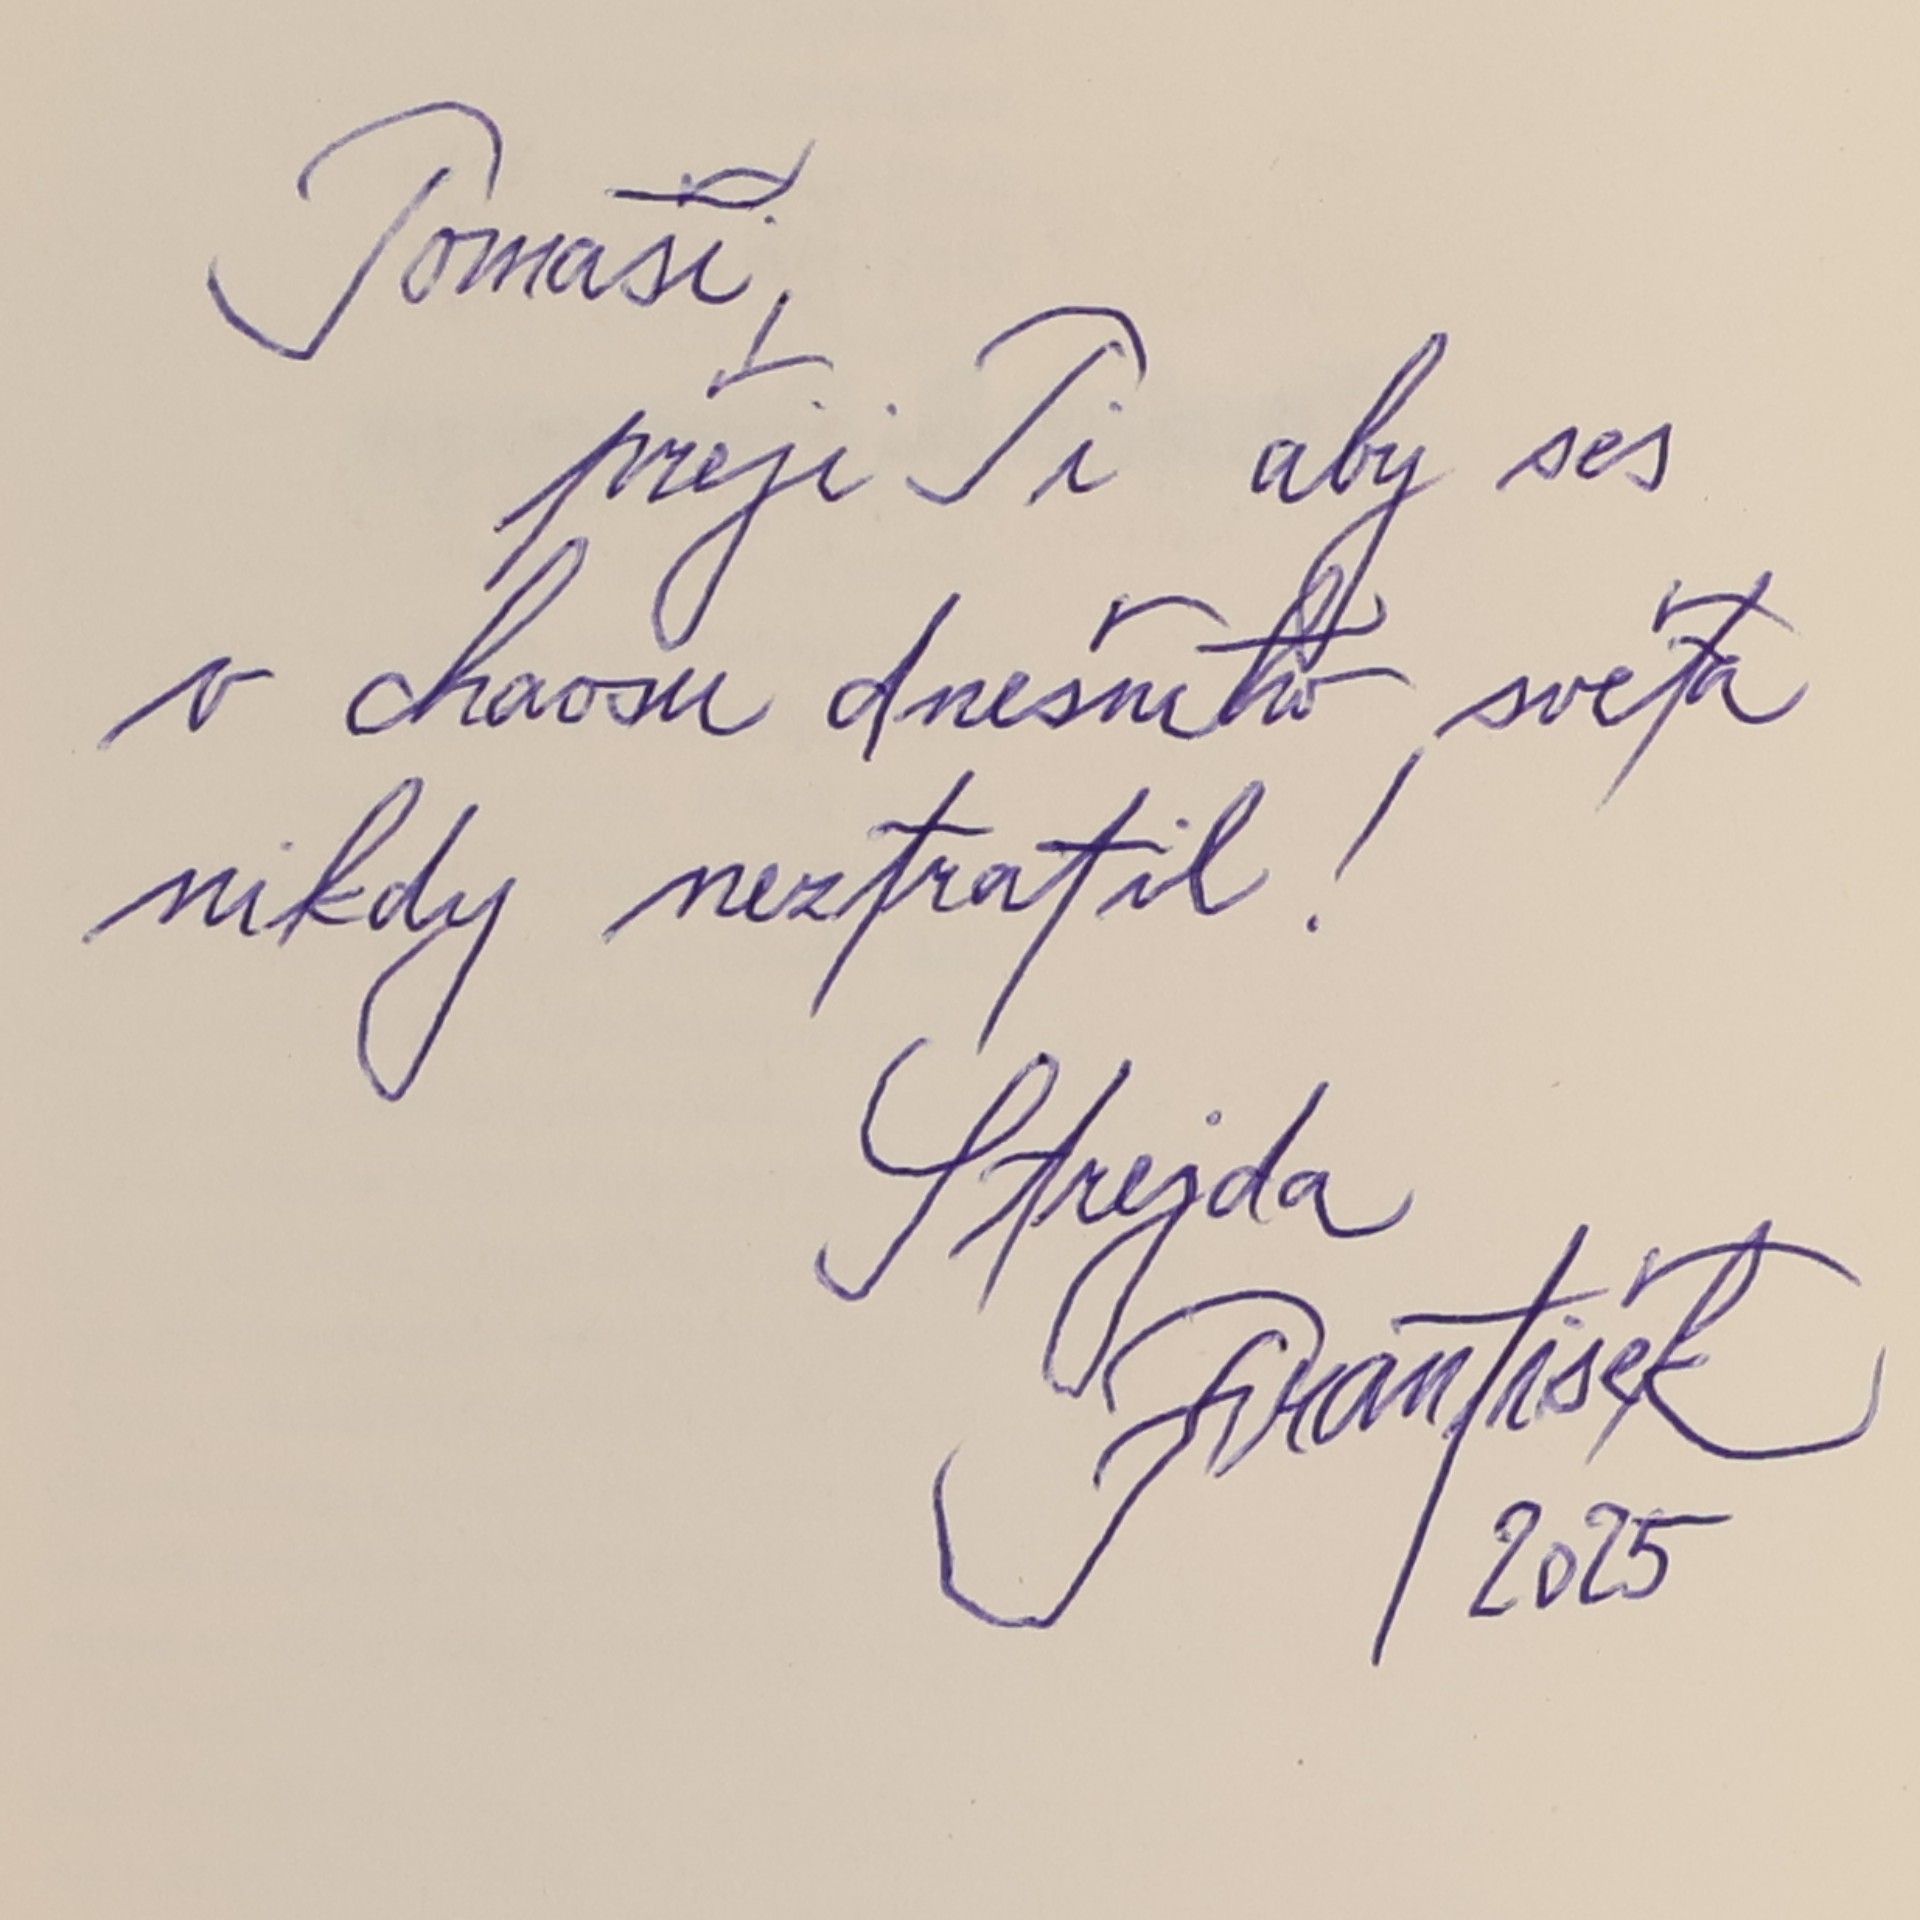 Tomáši,
přeji Ti aby ses
v chaosu dnešního světa
nikdy neztratil!
Strejda
František
2025